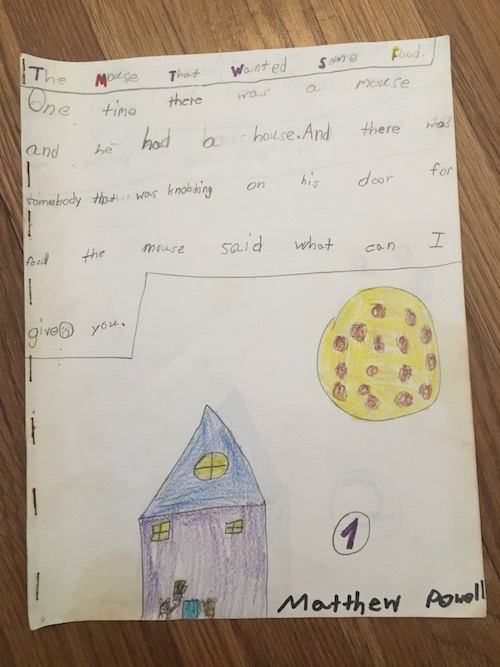 The Mouse That Wanted Some Food.
One time there was a mouse
and he had a house. And there was
somebody that was knobhing on his door for
food the mouse said what can I
give you.
1
Matthew Powell